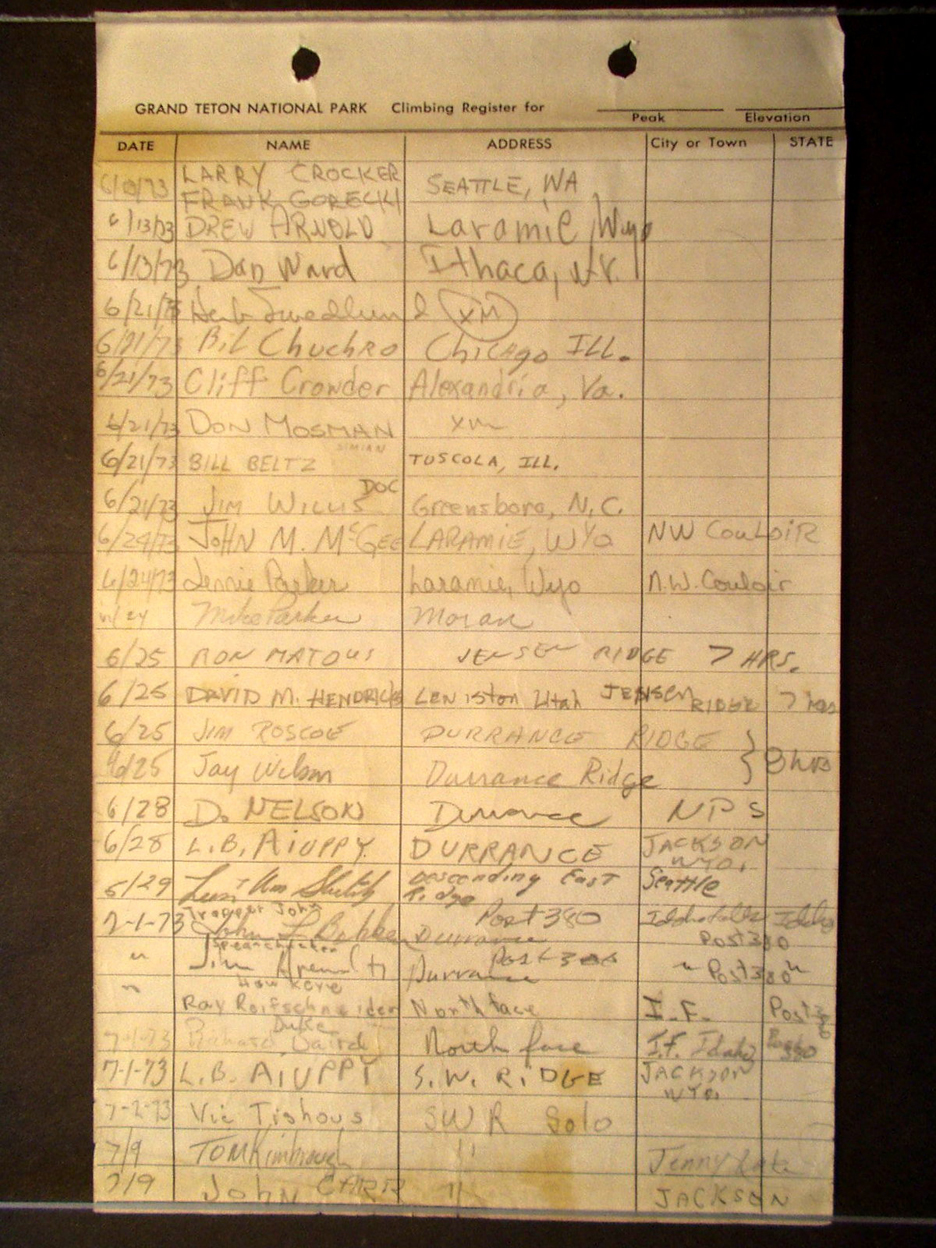 GRAND TETON NATIONAL PARK Climbing Register for
Peak Elevation
DATE NAME ADDRESS City or Town STATE
LARRY CROCKER SEATTLE, WA
FRANK GORECKI
6/13/73 DREW ARNOLD Laramie, Wyo
6/13/73 Dan Ward Ithaca, N.Y.
6/21/73 Herb Swedlund XM
6/21/73 Bil Chuchro Chicago ILL.
6/21/73 Cliff Crowder Alexandria, Va.
6/21/73 DON MOSMAN XM
SIMIAN
6/21/73 BILL BELTZ TUSCOLA, ILL.
DOC
6/21/73 JIM WILLIS Greensboro, N.C.
6/24/73 JOHN M. McGEE LARAMIE, WYO NW COULOIR
6/24/73 Jennie Parker Laramie, Wyo N.W. Couloir
Mike Parker Moran
6/25 RON MATOUS JENSEN RIDGE 7 HRS.
6/25 DAVID M. HENDRICKS Lewiston Utah JENSEN RIDGE 7 hrs
6/25 JIM ROSCOE DURRANCE RIDGE
6/25 Jay Wilson Durrance Ridge } 8 hrs
6/28 D. NELSON Durrance NPS
6/28 L.B. AIUPPY DURRANCE JACKSON
WYO.
5/29 Descending East Ridge Seattle
Trapper John
7-1-73 John Post 380 Idaho Falls Idaho
Durrance Post 380
Spearchucker
" Jim Post 380 " Post 380 "
Durrance
Hawkeye
" Ray Reifschneider North face I.F. Post 380
Duke
7-1-73 Richard Laird North face I.F. Idaho Post 380
7-1-73 L.B. AIUPPY S.W. RIDGE JACKSON
WYO.
7-2-73 Vic Tishous SWR Solo
7/9 TOM Kimbrough " Jenny Lake
7/9 John CARR " JACKSON